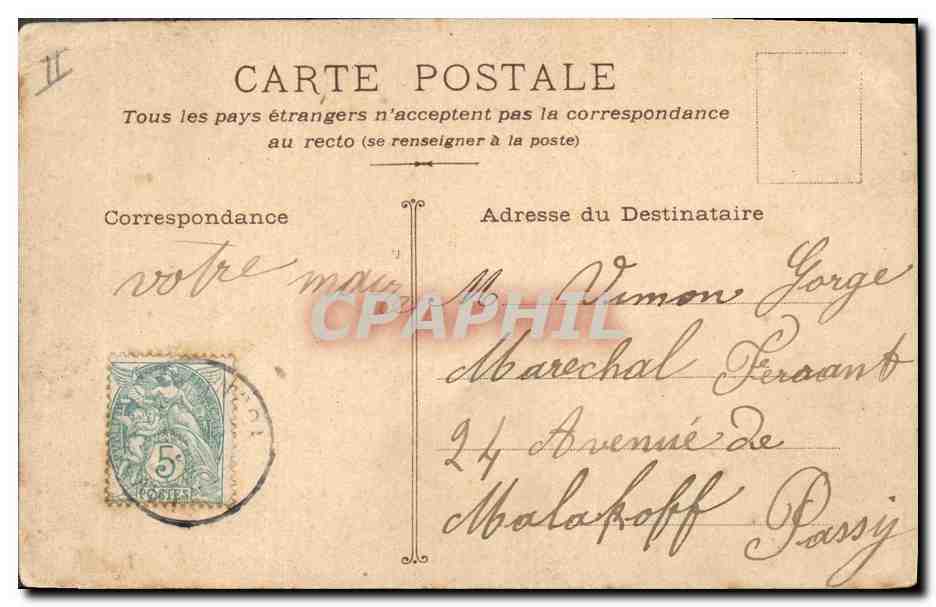 II
CARTE POSTALE
Tous les pays étrangers n'acceptent pas la correspondance
au recto (se renseigner à la poste)
Correspondance
Adresse du Destinataire
votre
M. Vimon Gorge
Marechal Ferrant
24 Avenue de
Malakoff Passy
5c
POSTES
CPAPHIL